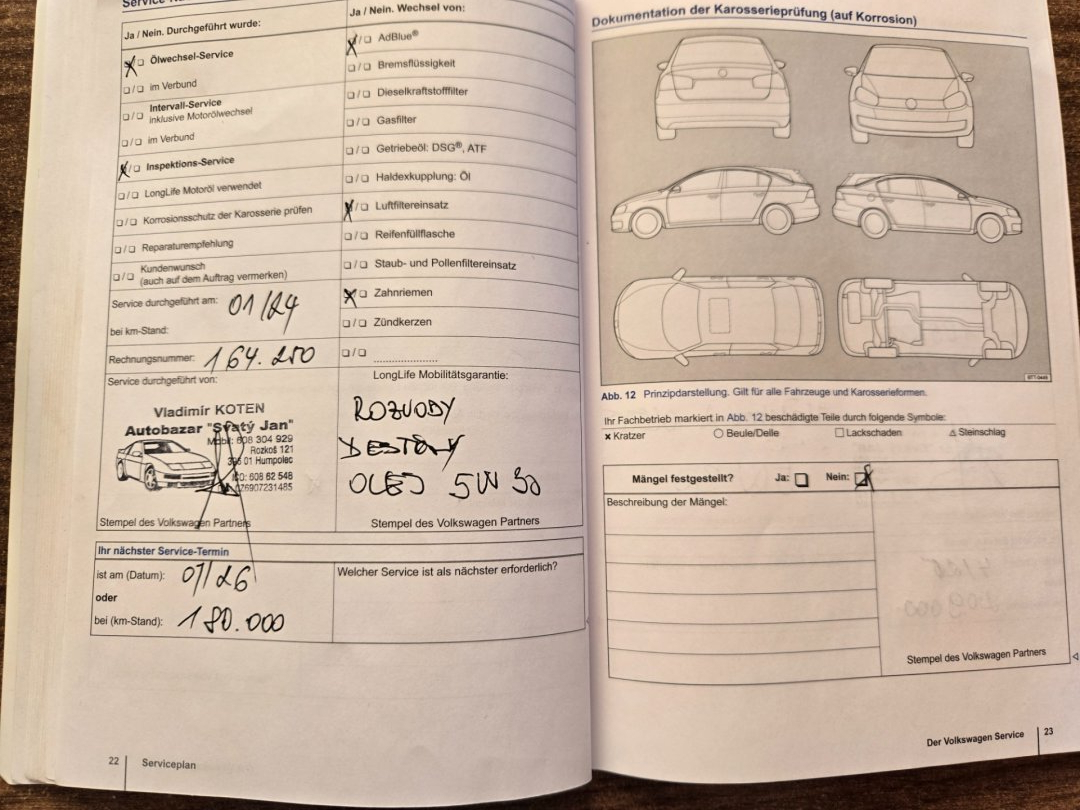 Ja / Nein. Durchgeführt wurde:
Ölwechsel-Service
im Verbund
Intervall-Service
inklusive Motorölwechsel
im Verbund
Inspektions-Service
LongLife Motoröl verwendet
Korrosionsschutz der Karosserie prüfen
Reparaturempfehlung
Kundenwunsch
(auch auf dem Auftrag vermerken)
Service durchgeführt am: 01/24
bei km-Stand:
Rechnungsnummer: 164.250
Service durchgeführt von:
Vladimír KOTEN
Autobazar "Svatý Jan"
Mobil: 608 304 929
Rozkoš 121
396 01 Humpolec
IČO: 608 62 548
Stempel des Volkswagen Partners
Ja / Nein. Wechsel von:
AdBlue®
Bremsflüssigkeit
Dieselkraftstofffilter
Gasfilter
Getriebeöl: DSG®, ATF
Haldexkupplung: Öl
Luftfiltereinsatz
Reifenfüllflasche
Staub- und Pollenfiltereinsatz
Zahnriemen
Zündkerzen
LongLife Mobilitätsgarantie:
ROZVODY
OLEJ 5W30
Stempel des Volkswagen Partners
Ihr nächster Service-Termin
ist am (Datum): 01/26
oder
bei (km-Stand): 180.000
Welcher Service ist als nächster erforderlich?
22 Serviceplan
Dokumentation der Karosserieprüfung (auf Korrosion)
Abb. 12 Prinzipdarstellung. Gilt für alle Fahrzeuge und Karosserieformen.
Ihr Fachbetrieb markiert in Abb. 12 beschädigte Teile durch folgende Symbole:
Kratzer Beule/Delle Lackschaden Steinschlag
Mängel festgestellt? Ja: Nein:
Beschreibung der Mängel:
Stempel des Volkswagen Partners
Der Volkswagen Service 23